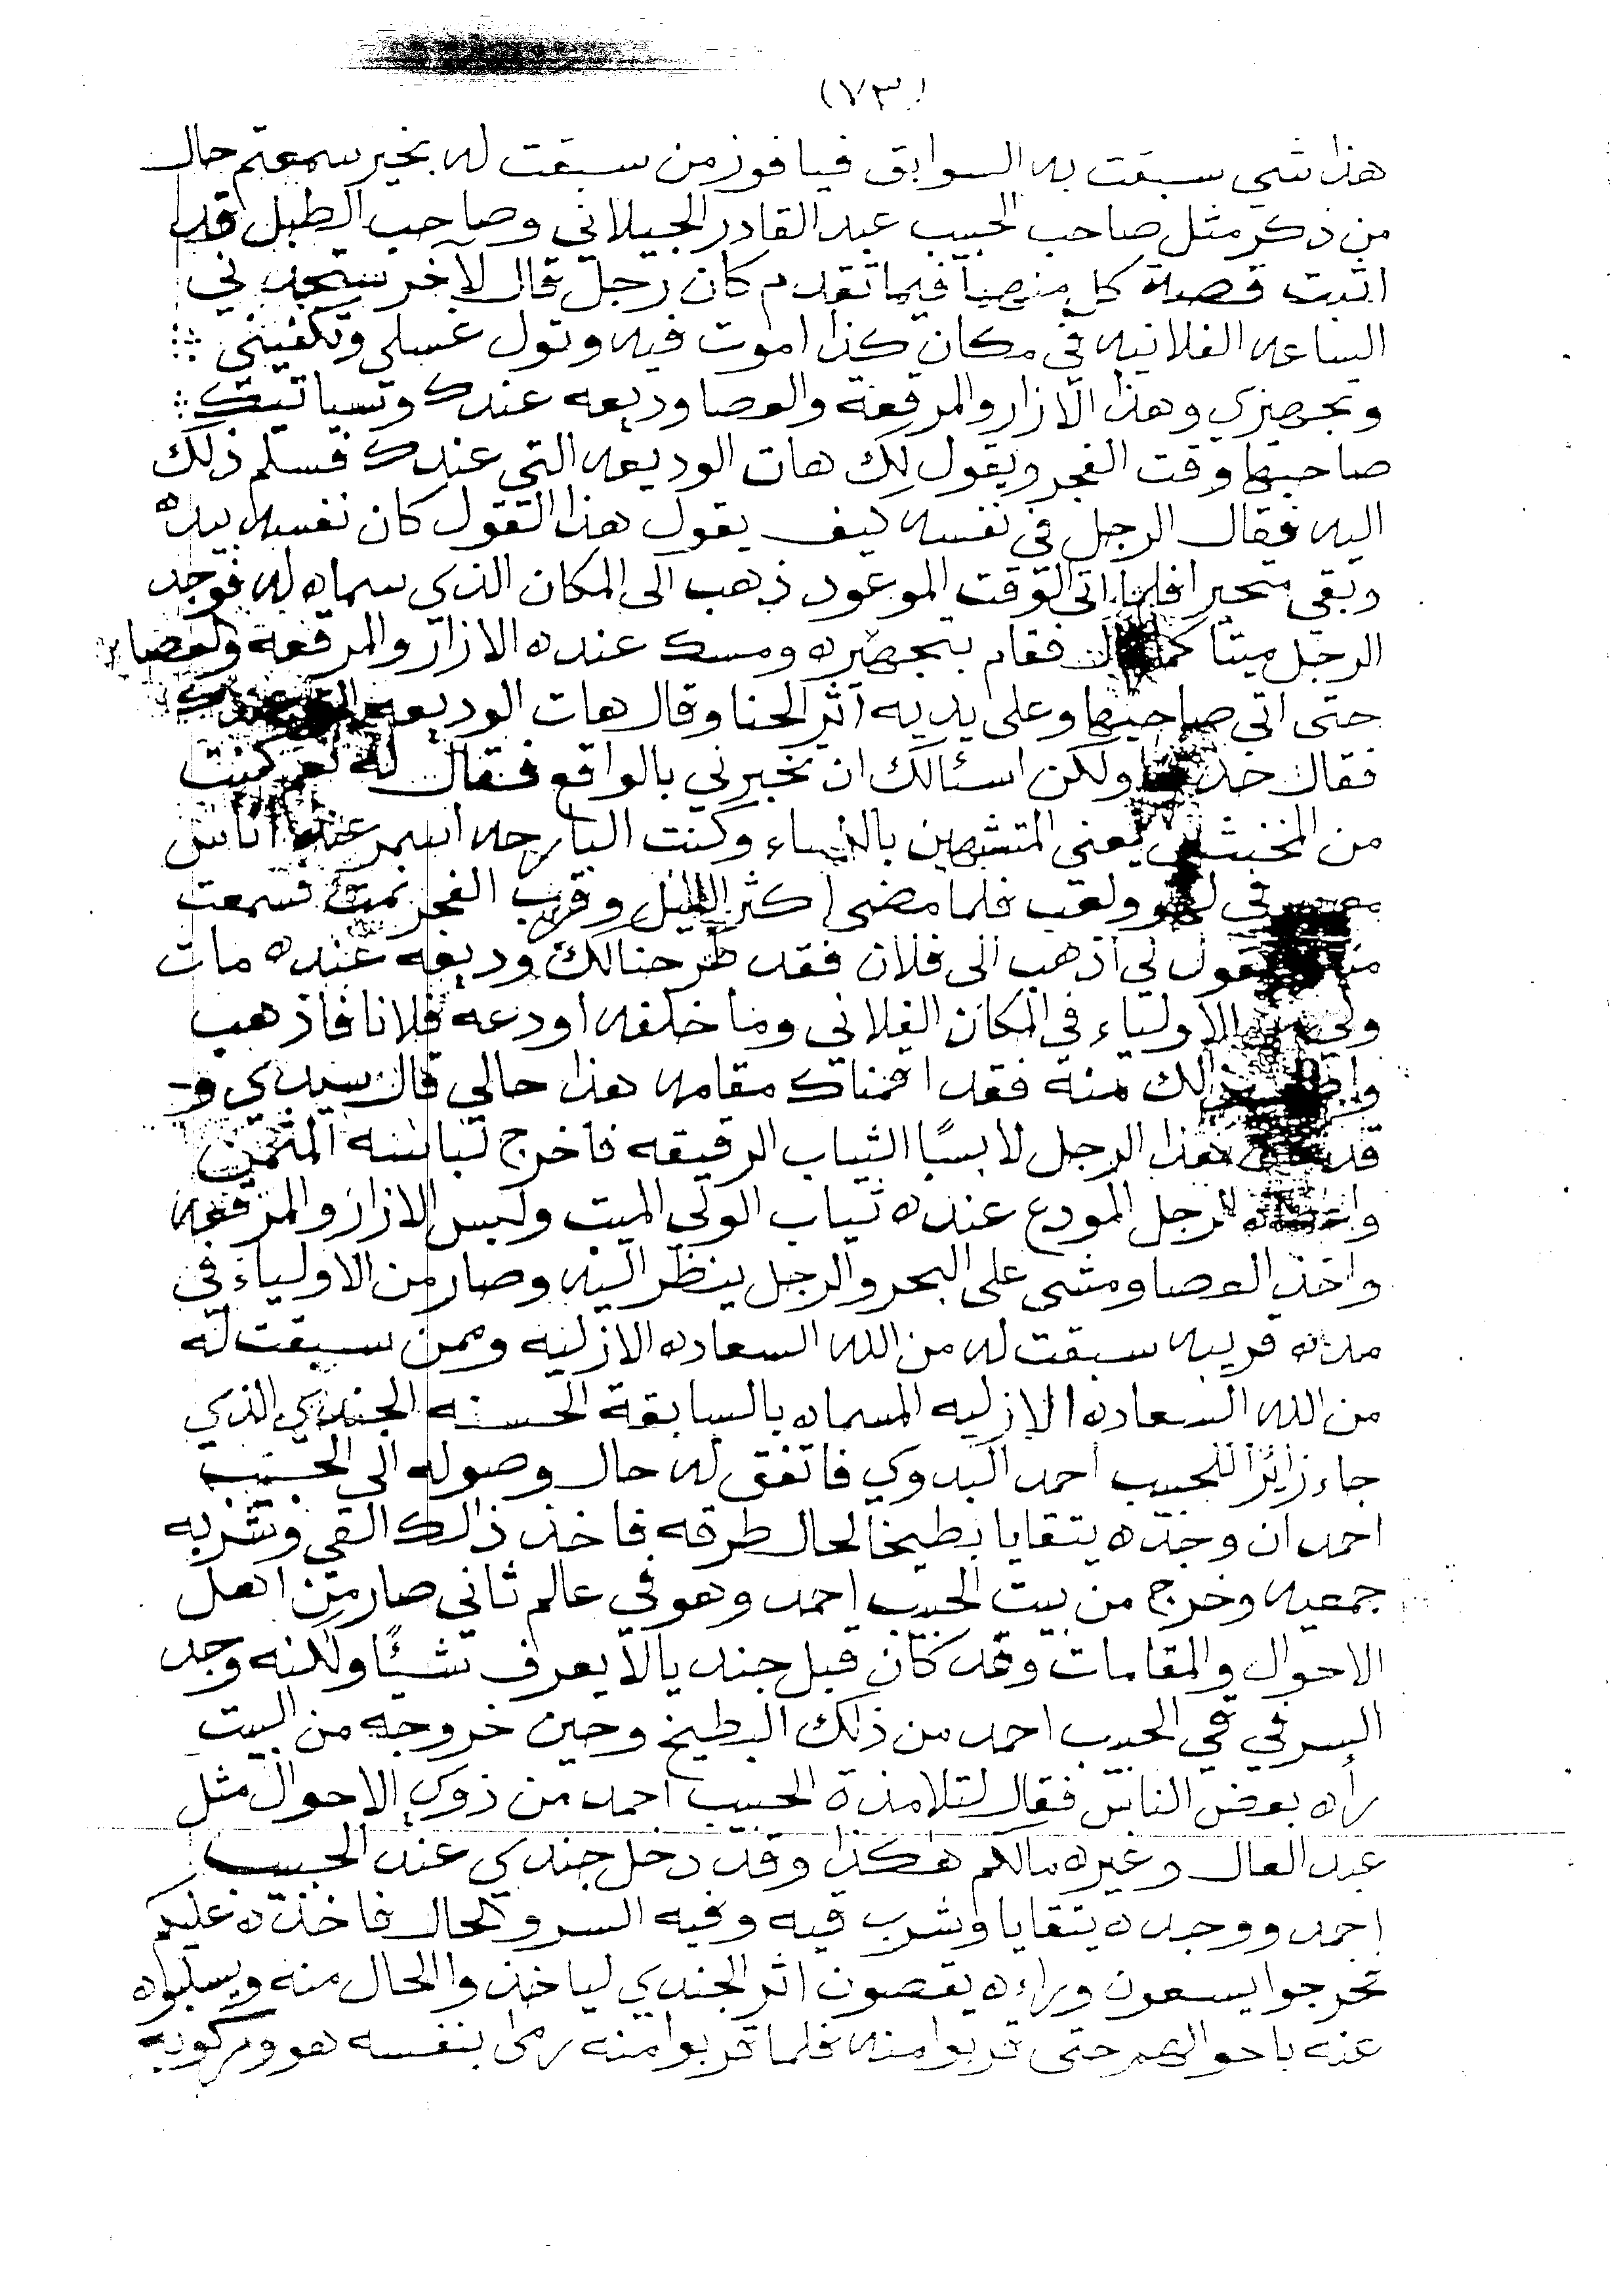 (٧٣)
هذا شي سبقت به السوابق فيا فوز من سبقت له بخير سمعتم حال
من ذكر مثل صاحب الحبيب عبد القادر الجيلاني وصاحب الطبل قد
اثبت قصة كل منهما فيما تقدم كان رجل قال لآخر ستجدني
الساعه الفلانيه في مكان كذا اموت فيه وتول غسلي وتكفيني
وتجهيزي وهذا الازار والمرقعة والعصا وديعه عندك وسياتيك
صاحبها وقت الفجر ويقول لك هات الوديعه التي عندك فسلم ذلك
اليه فقال الرجل في نفسه كيف يقول هذا القول كان نفسه بيده
وبقي متحيرا فلما اتى الوقت الموعود ذهب الى المكان الذي سماه له فوجد
الرجل ميتا كما قال فقام بتجهيزه ومسك عنده الازار والمرقعة والعصا
حتى اتى صاحبها وعلى يديه اثر الحنا وقال هات الوديعه التي عندك
فقال خذها ولكن اسئالك ان تخبرني بالواقع فقال له نعم كنت
من المخنثين يعني المتشبهين بالنساء وكنت البارحه اسمر عند اناس
في لهو ولعب فلما مضى اكثر الليل وقرب الفجر نمت فسمعت
يقول لي اذهب الى فلان فقد طرحنا لك وديعه عنده مات
ولي من الاولياء في المكان الفلاني وما خلفه اودعه فلانا فاذهب
ذالك منه فقد اقمناك مقامه هذا حالي قال سيدي و
هذا الرجل لابسًا الثياب الرقيقه فاخرج لباسه المثمن
الرجل المودع عنده ثياب الولي الميت ولبس الازار والمرقعه
واخذ العصا ومشى على البحر والرجل ينظر اليه وصار من الاولياء في
مدة قريبه سبقت له من الله السعاده الازليه وممن سبقت له
من الله السعاده الازليه المسماه بالسابقة الحسنه الجندي الذي
جاء زائرًا للحبيب احمد البدوي فاتفق له حال وصوله الى الحبيب
احمد ان وجده يتقايا بطيخا لحال طرقه فاخذ ذالك القي وشربه
جمعيه وخرج من بيت الحبيب احمد وهو في عالم ثاني صار من اهل
الاحوال والمقامات وقد كان قبل جنديا لا يعرف شيئًا ولكنه وجد
السر في قي الحبيب احمد من ذلك البطيخ وحين خروجه من البيت
رأه بعض الناس فقال لتلامذة الحبيب احمد من ذوي الاحوال مثل
عبد العال وغيره مالكم هكذا وقد دخل جندي عند الحبيب
احمد ووجده يتقايا وشرب قيه وفيه السر والحال فاخذه عليكم
فخرجوا يسعون وراءه يقصون اثر الجندي لياخذوا الحال منه ويسلبوه
عنه باحوالهم حتى قربوا منه فلما قربوا منه رمى بنفسه هو ومركوبه